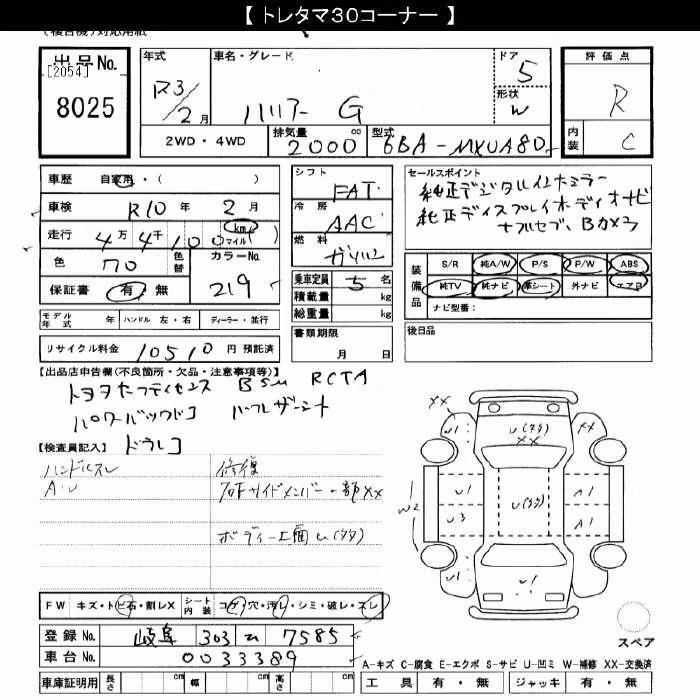 【 トレタマ30コーナー 】
出品No.
[2054]
8025
年式
R3/2月
車名・グレード
ハリアー G
ドア
5
形状
W
評価点
R
内装
C
2WD・4WD
排気量
2000 cc
型式
6BA-MXUA80
車歴 自家用・( )
車検 R10年 2月
走行 4万4千100 km マイル
色 クロ 色替
カラーNo.
219
保証書 有・無
シフト
FAT
冷房
AAC
燃料
ガソリン
乗車定員 5名
積載量 kg
総重量 kg
セールスポイント
純正デジタルインナーミラー
純正ディスプレイオーディオナビ
装備品
S/R 純A/W P/S P/W ABS
純TV 純ナビ 革シート 外ナビ エアB
ナビ型番:
モデル年式 年 ハンドル 左・右 ディーラー・並行
リサイクル料金 10510円 預託済
書類期限
月 日
後日品
【出品店申告欄(不良箇所・欠品・注意事項等)】
トヨタセーフティセンス BSM RCTA
パワーバックドア ハーフレザーシート
ドラレコ
【検査員記入】
ハンドルスレ
A・U
修復
右Fサイドメンバー一部XX
ボディー上面U(タタ)
XX
W1
U(タタ)
XX
XX
W1
U1
A1
W2
U(タタ)
U3
A1
W1
U1
スペア
FW キズ・トビ石・割レX
シート内装 コゲ・穴・汚レ・シミ・破レ・スレ
登録No. 岐阜 303 ム 7585
車台No. 0033389
A-キズ C-腐食 E-エクボ S-サビ U-凹ミ W-補修 XX-交換済
車庫証明用 長さ cm 幅 cm 高さ cm
工具 有・無 ジャッキ 有・無